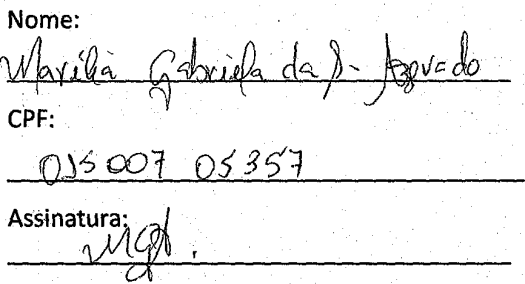 Nome:
Marília Gabriela da S. Azevedo
CPF:
015007 05357
Assinatura:
MGA.